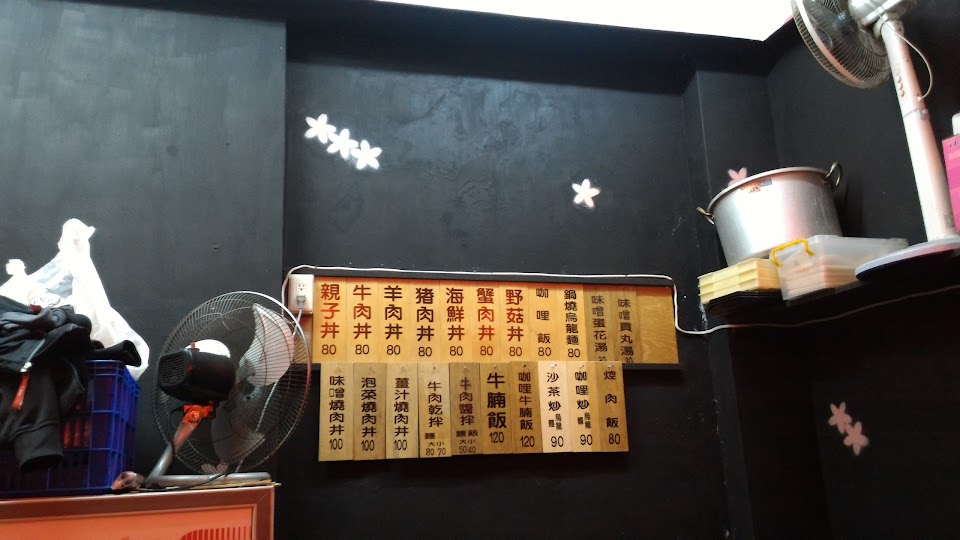 親子丼 80
牛肉丼 80
羊肉丼 80
豬肉丼 80
海鮮丼 80
蟹肉丼 80
野菇丼 80
咖哩飯 80
鍋燒烏龍麵 80
味噌蛋花湯 30
味噌貢丸湯 30
味噌燒肉丼 100
泡菜燒肉丼 100
薑汁燒肉丼 100
牛肉乾拌麵 大80 小70
牛肉醬拌麵飯 大50 小40
牛腩飯 120
咖哩牛腩飯 120
沙茶炒烏龍麵 90
咖哩炒烏龍麵 90
燻肉飯 80